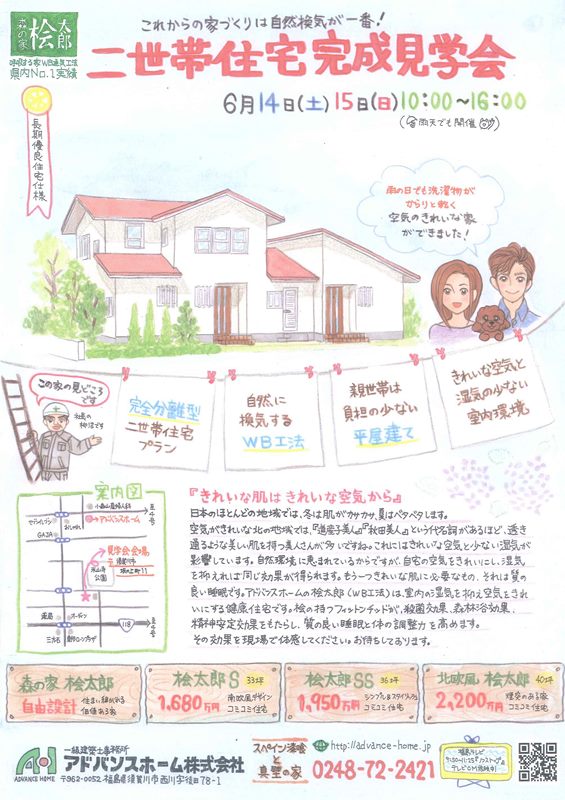 これからの家づくりは自然換気が一番!
森の家
桧太郎
呼吸する家WB通気工法
県内No.1実績
二世帯住宅完成見学会
6月14日(土)15日(日)10:00〜16:00
(雨天でも開催)
長期優良住宅仕様
雨の日でも洗濯物が
からりと乾く
空気のきれいな家
ができました!
この家の見どころ
です
社長の
柳沼です
完全分離型
二世帯住宅
プラン
自然に
換気する
WB工法
親世帯は
負担の少ない
平屋建て
きれいな空気と
湿気の少ない
室内環境
案内図
アドバンスホーム
GAJA
見学会会場
須賀川市
公園
薬局
118
『きれいな肌はきれいな空気から』
日本のほとんどの地域では、冬は肌がカサカサ、夏はベタベタします。
空気がきれいな北の地域では、『道産子美人』『秋田美人』という代名詞があるほど、透き
通るような美しい肌を持つ美人さんが多いですね。これにはきれいな空気と少ない湿気が
影響しています。自然環境に恵まれているからですが、自宅の空気をきれいにし、湿気
を抑えれば同じ効果が得られます。もう一つきれいな肌に必要なもの、それは質の
良い睡眠です。アドバンスホームの桧太郎(WB工法)は、室内の湿気を抑え空気をき
れいにする健康住宅です。桧の持つフィットンチッドが、殺菌効果、森林浴効果、
精神安定効果をもたらし、質の良い睡眠と体の調整力を高めます。
その効果を現場で体感してください。お待ちしております。
森の家 桧太郎
自由設計
住まい継がれる
価値ある家
桧太郎S 33坪
1,680万円
南欧風デザイン
コミコミ住宅
桧太郎SS 36坪
1,950万円
シンプル&スタイリッシュ
コミコミ住宅
北欧風 桧太郎 40坪
2,200万円
理想のある家
コミコミ住宅
一級建築士事務所
アドバンスホーム株式会社
ADVANCE HOME
〒962-0052 福島県須賀川市西川字後田78-1
スペイン漆喰
と
真壁の家
http://advance-home.jp
0248-72-2421
福島テレビ
テレビCM放映中!